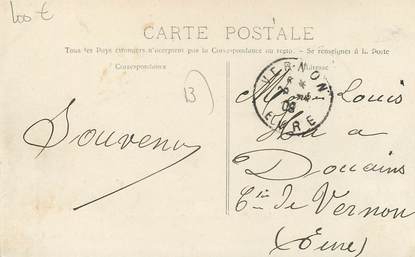 100 €
CARTE POSTALE
Tous les Pays étrangers n'acceptent pas la Correspondance au recto. — Se renseigner à la Poste
Correspondance
Adresse
13
VERNON
09
EURE
Souvenir
Louis
a
Douains
Cne de Vernon
(Eure)